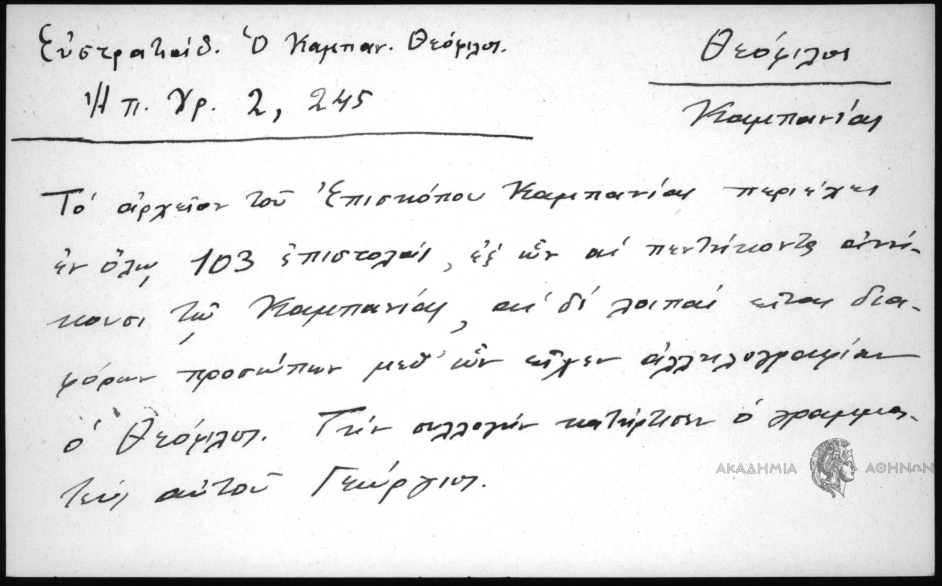 Εὐστρατιάδ. Ὁ Καμπαν. Θεόφιλος.
Ἠπ. Χρ. 2, 245
Θεόφιλος
Καμπανίας
Τὸ ἀρχεῖον τοῦ Ἐπισκόπου Καμπανίας περιέχει
ἐν ὅλῳ 103 ἐπιστολάς, ἐξ ὧν αἱ πεντήκοντα ἀνή-
κουσι τῷ Καμπανίας, αἱ δὲ λοιπαὶ εἶναι δια-
φόρων προσώπων μεθ' ὧν εἶχεν ἀλληλογραφίαν
ὁ Θεόφιλος. Τὴν συλλογὴν κατήρτισεν ὁ γραμμα-
τεὺς αὐτοῦ Γεώργιος.
ΑΚΑΔΗΜΙΑ ΑΘΗΝΩΝ